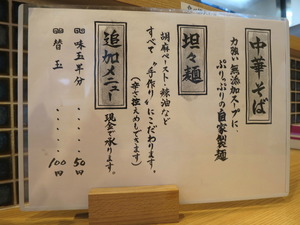 中華そば
力強い無添加スープに、
ぷりっぷりの自家製麺
坦々麺
胡麻ペースト・辣油など
すべて“手作り”にこだわります。
(辛さ控えめしてきます)
追加メニュー
現金で承ります。
味玉半分・・・・・50円
替玉・・・・・100円